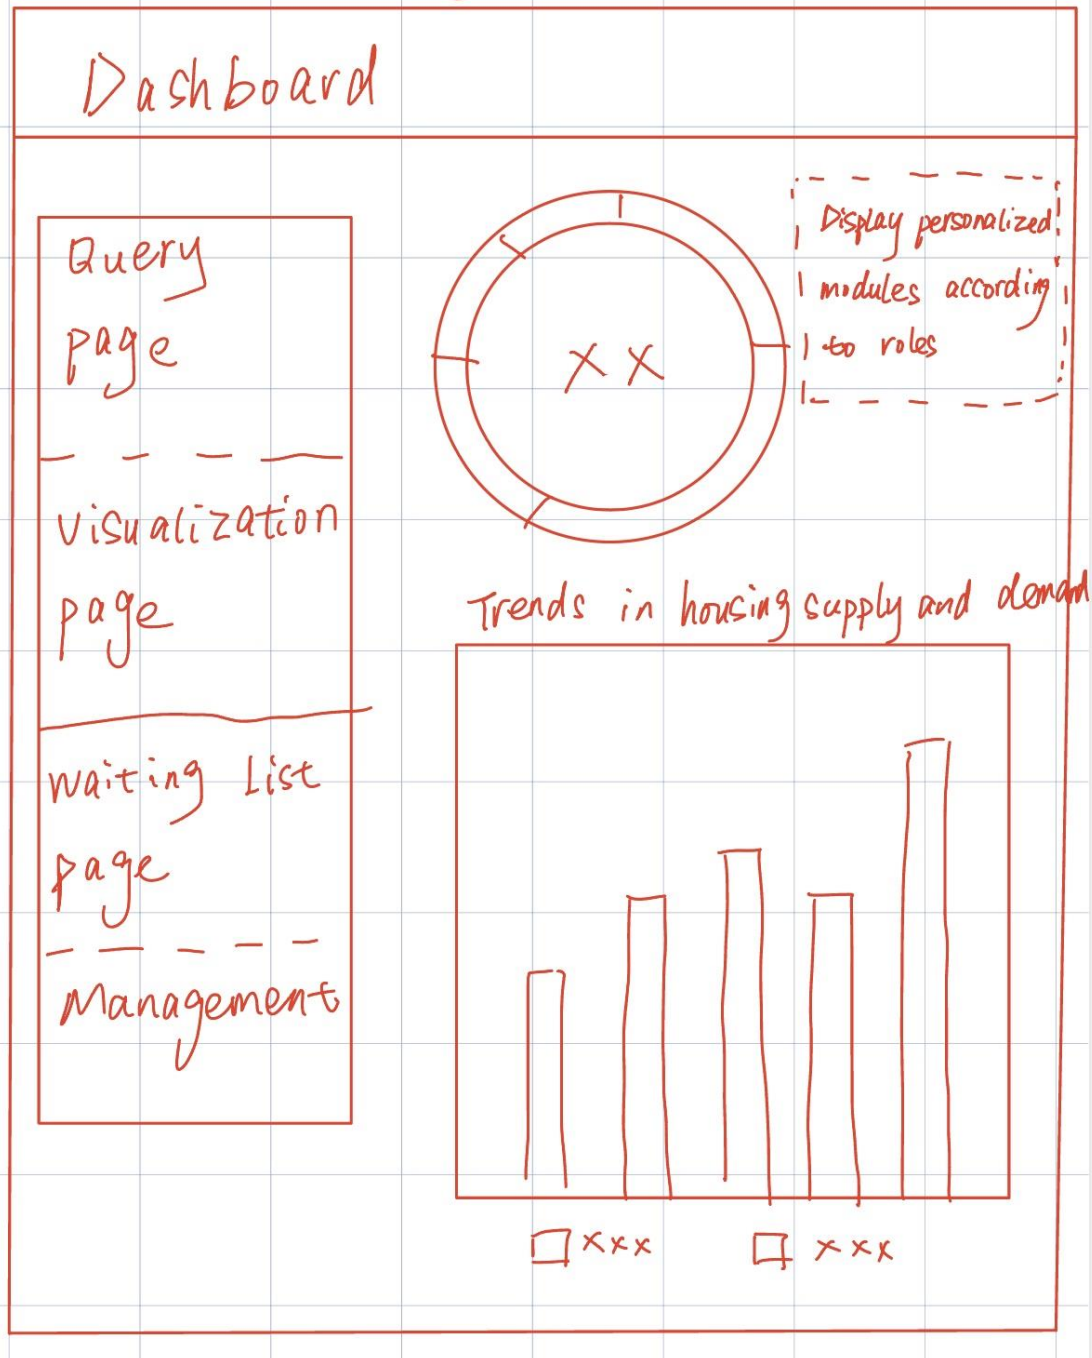 Dashboard
Query
page
visualization
page
waiting list
page
Management
XX
Display personalized
modules according
to roles
Trends in housing supply and demand
xxx
xxx